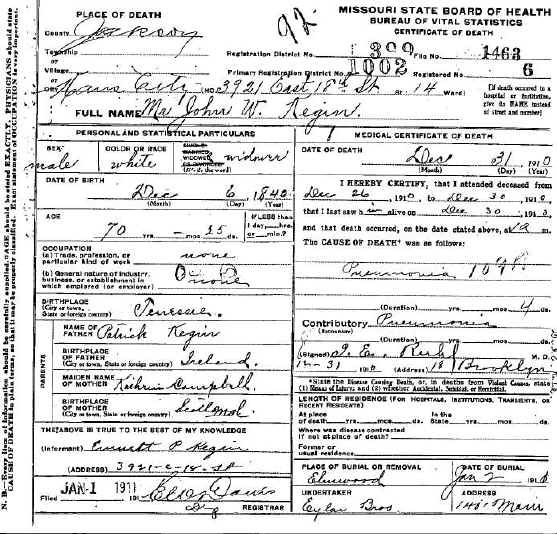 MISSOURI STATE BOARD OF HEALTH
BUREAU OF VITAL STATISTICS
CERTIFICATE OF DEATH
PLACE OF DEATH
County Jackson
Township
Village
City Kansas City (NO. 3921 East 18th St St. 14 Ward)
Registration District No. 399 File No. 1463
Primary Registration District No. 1002 Registered No. 6
[If death occurred in a hospital or institution, give its NAME instead of street and number]
FULL NAME Mr John W. Regin.
PERSONAL AND STATISTICAL PARTICULARS
SEX male
COLOR OR RACE white
SINGLE MARRIED WIDOWED OR DIVORCED (Write the word) widower
DATE OF BIRTH Dec 6, 1840
(Month) (Day) (Year)
AGE 70 yrs. mos. 25 ds.
IF LESS than 1 day, hrs. or min.?
OCCUPATION
(a) Trade, profession, or particular kind of work none
(b) General nature of industry, business, or establishment in which employed (or employer) none
BIRTHPLACE (City or town, State or foreign country) Tenessee
PARENTS
NAME OF FATHER Patrick Regin
BIRTHPLACE OF FATHER (City or town, State or foreign country) Ireland.
MAIDEN NAME OF MOTHER Campbell
BIRTHPLACE OF MOTHER (City or town, State or foreign country)
THE ABOVE IS TRUE TO THE BEST OF MY KNOWLEDGE
(Informant) Emmett P Regin
(ADDRESS) 3921-E-18-St
Filed JAN-1 1911 191
REGISTRAR
MEDICAL CERTIFICATE OF DEATH
DATE OF DEATH Dec 31 1910
(Month) (Day) (Year)
I HEREBY CERTIFY, that I attended deceased from
Dec 26, 1910, to Dec 30 1910,
that I last saw him alive on Dec 30 1910,
and that death occurred, on the date stated above, at m.
The CAUSE OF DEATH* was as follows:
Pneumonia
(Duration) yrs. mos. 4 ds.
Contributory Pneumonia
(Secondary)
(Duration) yrs. mos. ds.
(Signed) M. D.
12-31 1910 (Address) 18 Brooklyn
*State the Disease Causing Death, or, in deaths from Violent Causes, state (1) Means of Injury; and (2) whether Accidental, Suicidal, or Homicidal.
LENGTH OF RESIDENCE (FOR HOSPITALS, INSTITUTIONS, TRANSIENTS, OR RECENT RESIDENTS)
At place of death yrs. mos. ds. In the State yrs. mos. ds.
Where was disease contracted
if not at place of death?
Former or usual residence
PLACE OF BURIAL OR REMOVAL Elmwood
DATE OF BURIAL Jan 2 191
UNDERTAKER Eylar Bros
ADDRESS Main